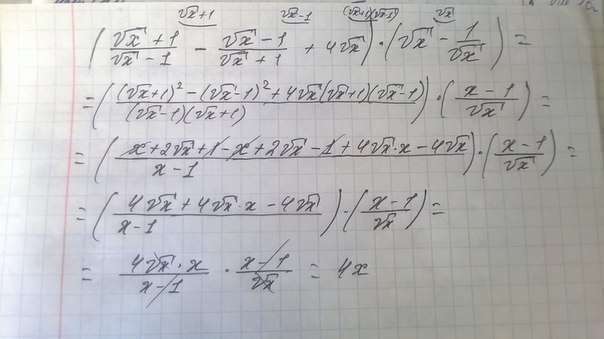 √x+1 √x-1 (√x+1)(√x-1) √x
((√x+1)/(√x-1) - (√x-1)/(√x+1) + 4√x)·(√x - 1/√x) =
= (((√x+1)²-(√x-1)²+4√x(√x+1)(√x-1))/((√x-1)(√x+1)))·((x-1)/√x) =
= ((x+2√x+1-x+2√x-1+4√x·x-4√x)/(x-1))·((x-1)/√x) =
= ((4√x+4√x·x-4√x)/(x-1))·((x-1)/√x) =
= (4√x·x)/(x-1) · (x-1)/√x = 4x